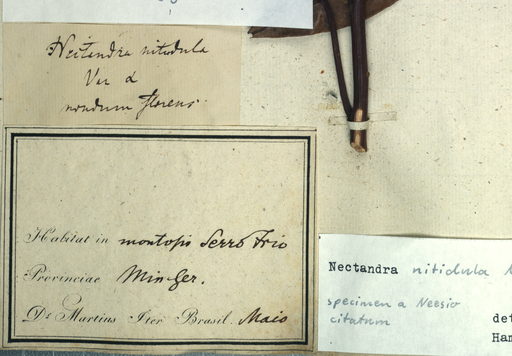 Nectandra nitidula
Var α
nondum florens
Habitat in montosis Serro Frio
Provinciae Min Ger.
Dr. Martius Iter Brasil. Maio
Nectandra nitidula
specimen a Neesio
citatum
det
Ham